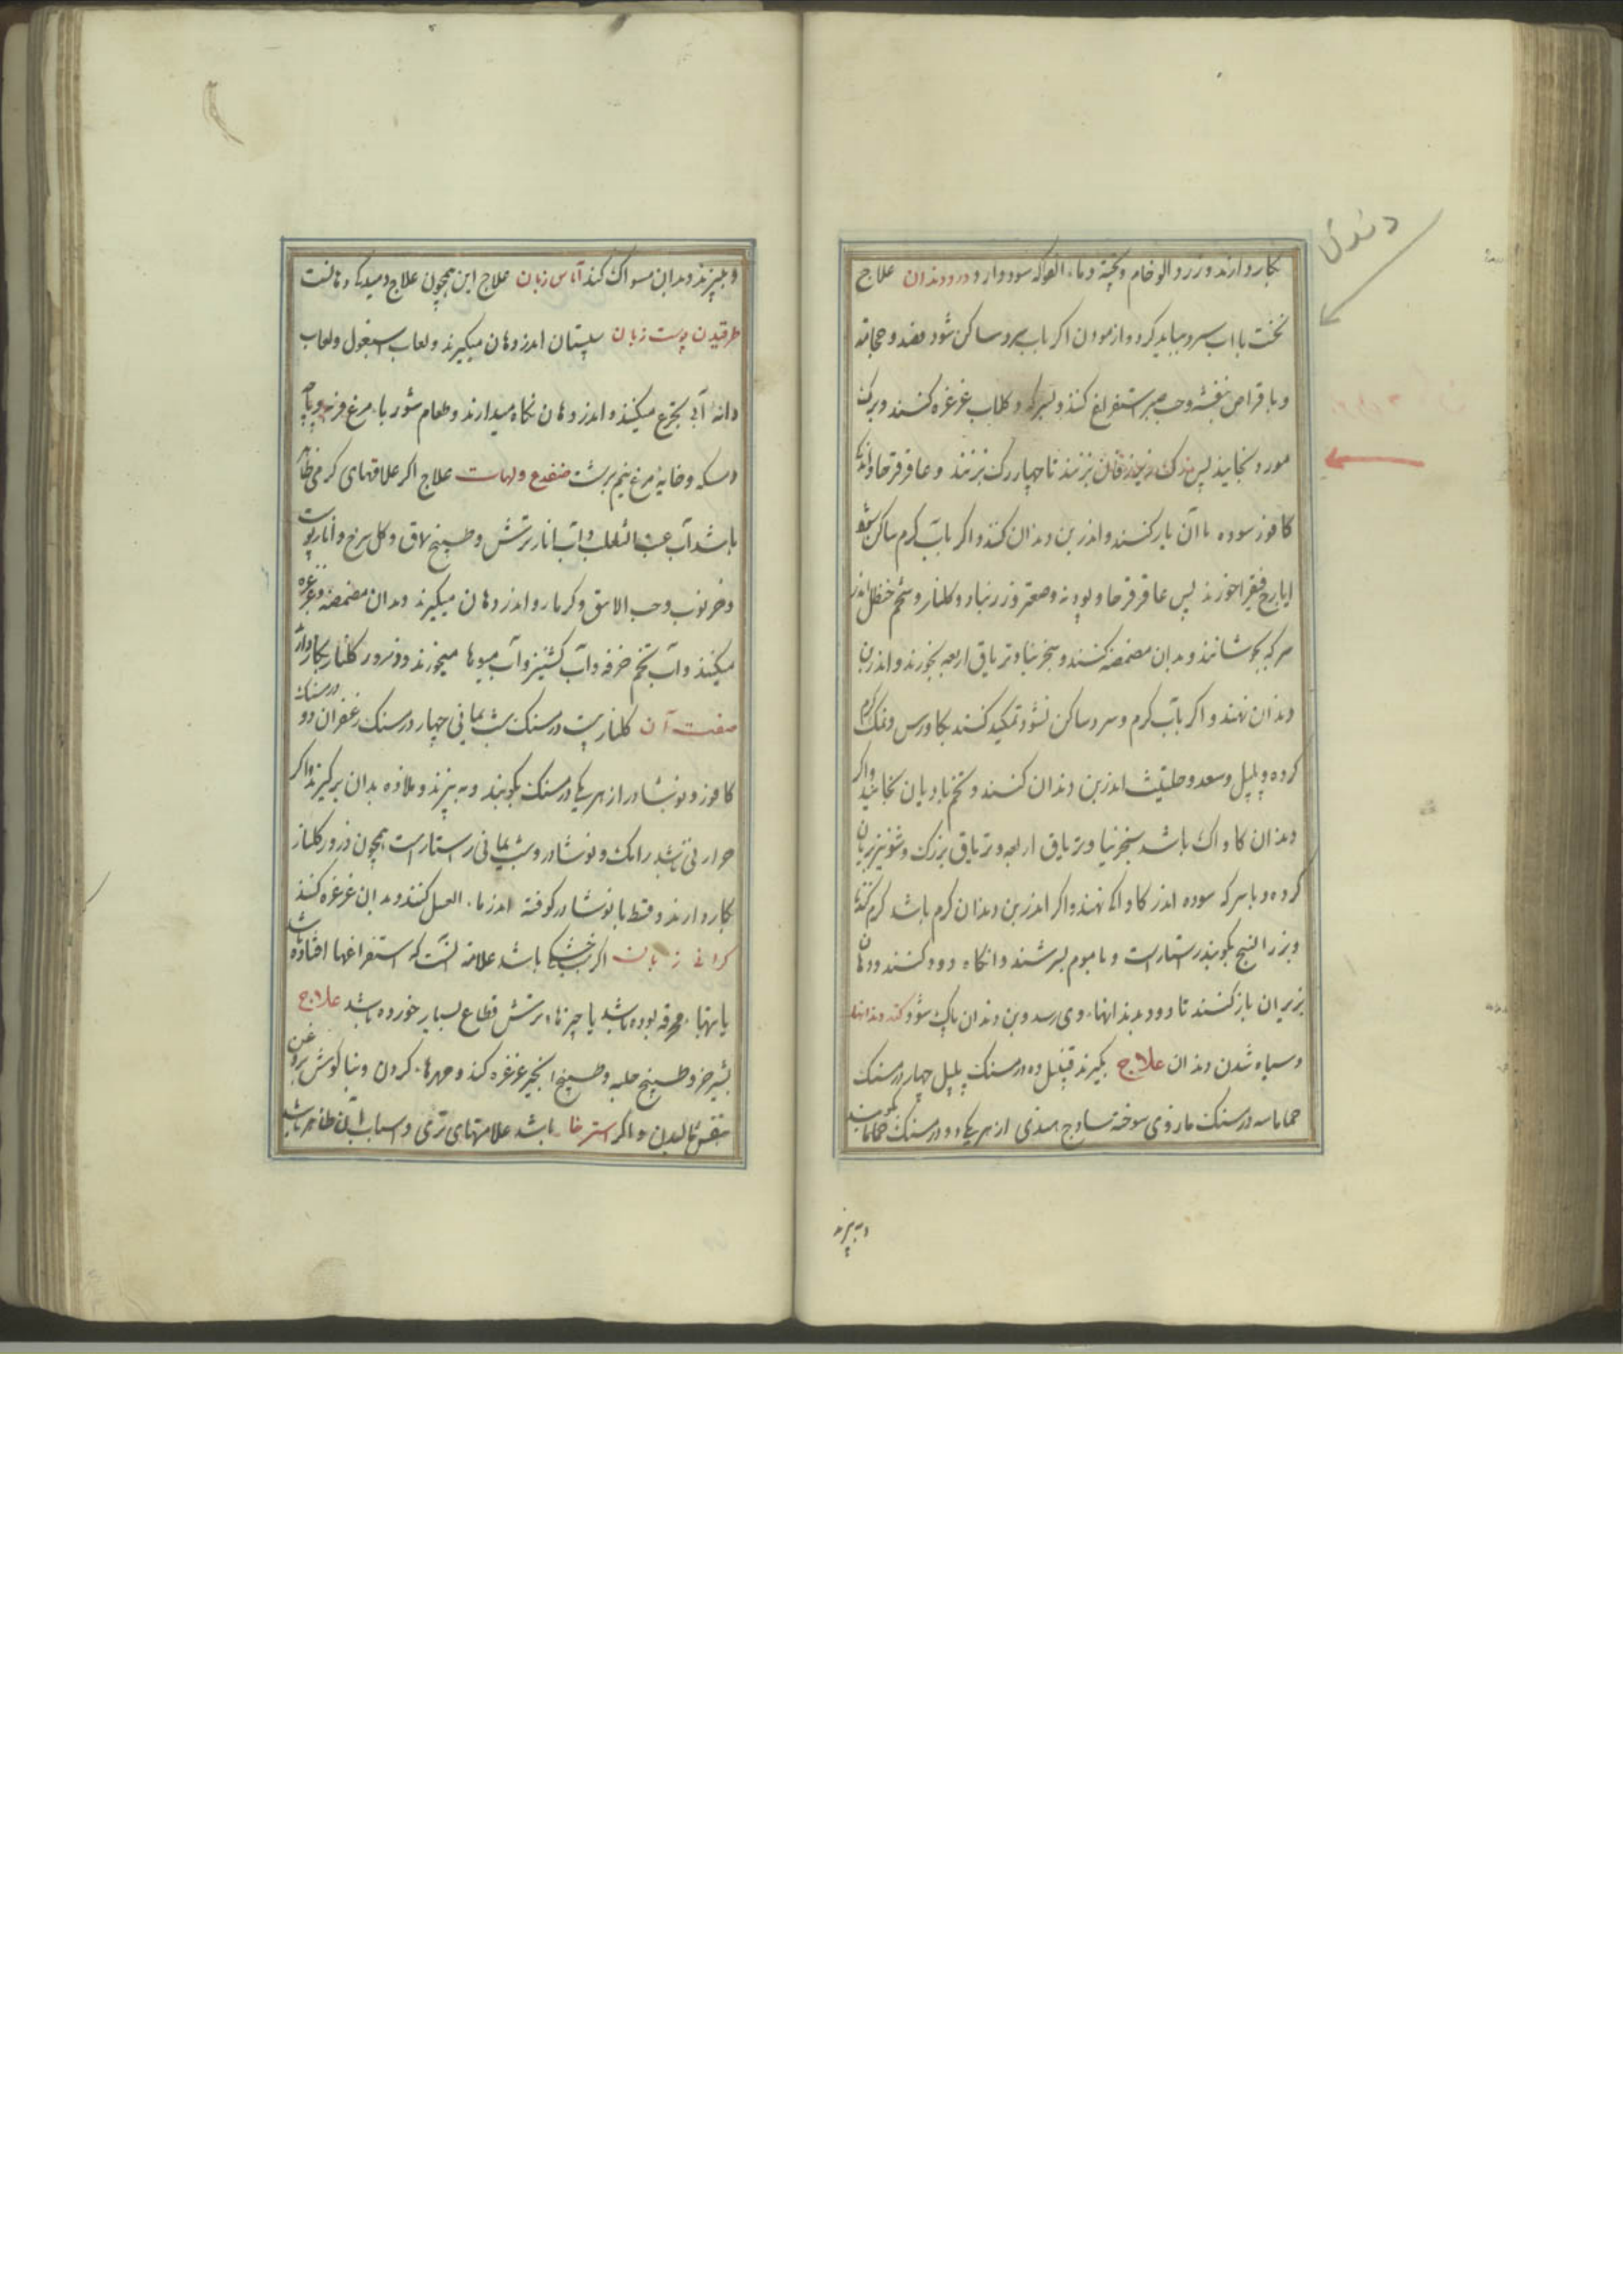 دندان
بکار دارند و زرد آلو خام و پخته و ماء الفواکه سود دارد درد دندان علاج
نخست با آب سرد بباید کرد و آزمودن اگر بآب سرد ساکن شود فصد و حجامة
و باقراص بنفشه و حب صبر استفراغ کند و بسرکه و کلاب غرغره کنند و برک
مورد بخایند پس تا چهار رک بزنند و عاقرقرحا و اندک
کافور سوده با آن یار کنند و اندر بن دندان کنند و اکر بآب کرم ساکن شود
ایارج فیقرا خورند پس عاقرقرحا و پودنه و صعتر و زرنباد و کلنار و شحم حنظل اندر
سرکه بجوشانند و بدان مضمضه کنند و سجزینا و تریاق اربعه بخورند و اندر بن
دندان نهند و اکر بآب کرم و سرد ساکن نشود تکمید کنند بکاورس و نمک کرم
کرده و پلپل و سعد و حلتیث اندر بن دندان کنند و تخم بادیان بخایند و اکر
دندان کاواک باشد سجزینا و تریاق اربعه و تریاق بزرک و شونیز بریان
کرده و با سرکه سوده اندر کاواک نهند و اکر اندر بن دندان کرم باشد تخم کندنا
و بزر البنج بکوبند راستاراست و با موم بسرشند و آنکاه دود کنند و دهان
بزیر آن باز کنند تا دود بدندانها وی رسد و بن دندان پاک شود کند دندانها
و سیاه شدن دندان علاج بکیرند پلپل ده درمسنک پلپل چهار درمسنک
حماما سه درمسنک مازوی سوخته ساذج هندی از هر یکی دو درمسنک حماما بکوبند
و به بیزند
و ببیزند و بدان مسواک کند آماس زبان علاج این همچون علاج دمیدکی دهانست
طرقیدن پوست زبان سپستان اندر دهان میکیرند و لعاب اسبغول و لعاب
دانه آبی بتجرع میکنند و اندر دهان نکاه میدارند و طعام شوربا مرغ فربه و پاچه
و مسکه و خایه مرغ نیم برشت ضفدع و لهات علاج اکر علاقهای کرمی ظاهر
باشد آب عنب الثعلب و آب انار ترش و طبیخ سماق و کل سرخ و انار پوست
و خرنوب و حب الاس و کزمازو اندر دهان میکیرند و بدان مضمضه و غرغره
میکنند و آب تخم خرفه و آب کشنیز و آب میوها میخورند و ذرور کلنار بکار دارند
صفت آن کلنار بیست درمسنک شب یمانی چهار درمسنک زعفران دو درمسنک
کافور و نوشادر از هر یکی درمسنک بکوبند و به بیزند و ملازه بدان برکیرند و اکر
حرارتی نباشد رامک و نوشادر و شب یمانی راستاراست همچون ذرور کلنار
بکار دارند و قسط با نوشادر کوفته اندر ماء العسل کنند و بدان غرغره کنند
کرانی زبان اکر بسبب خشکی باشد علامت آنست که استفراغها افتاده باشد
یا تبهاء محرقه بوده باشد یا چیزهاء ترش قطاع بسیار خورده باشد علاج
بشیر خر و طبیخ حلبه و طبیخ انجیر غرغره کند و مهرهاء کردن و بناکوش بروغن
بنفش مالیدن و اکر استرخا باشد علامتهای تری و اسباب آن ظاهر باشد